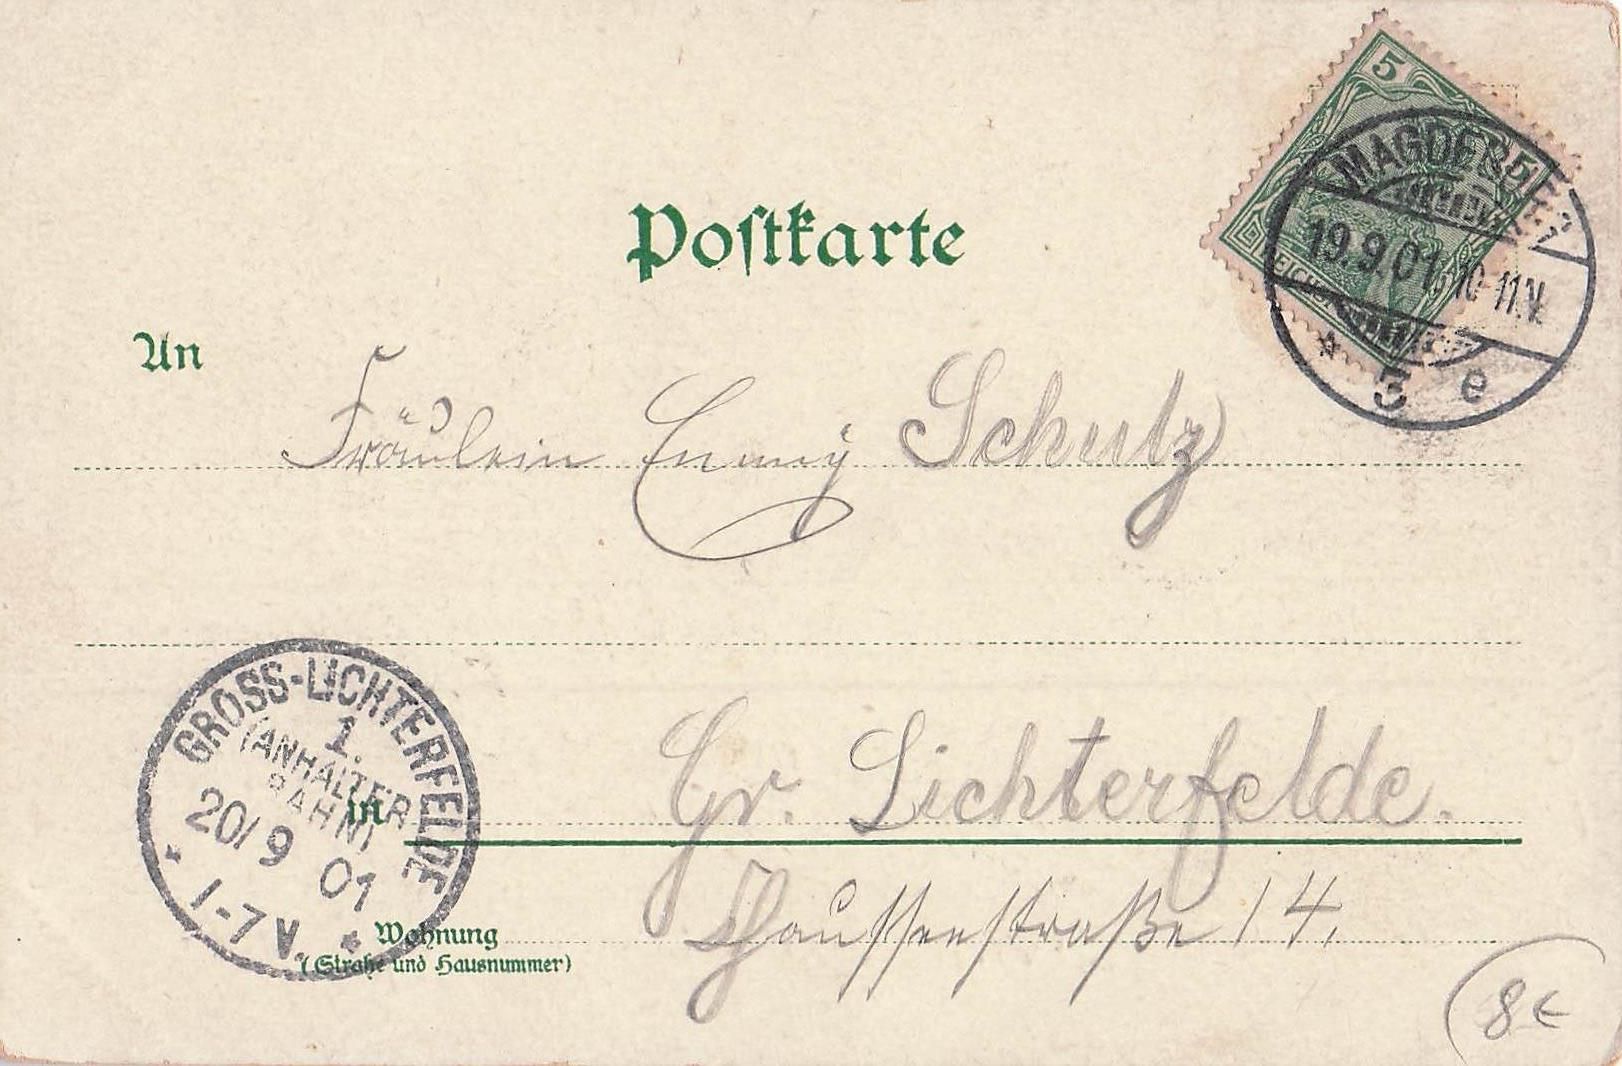 5
MAGDEBURG
19.9.01. 10-11.V.
* 3 e
Postkarte
An
Fräulein Enny Schulz
GROSS-LICHTERFELDE
1.
(ANHALTER
BAHN)
20/9 01
1-7 V.
in
Gr. Lichterfelde.
Wohnung
(Straße und Hausnummer)
Chausseestraße 14.
8€